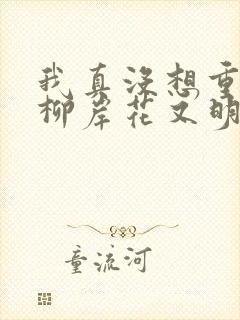 我真没想重
柳岸花又明
童流河